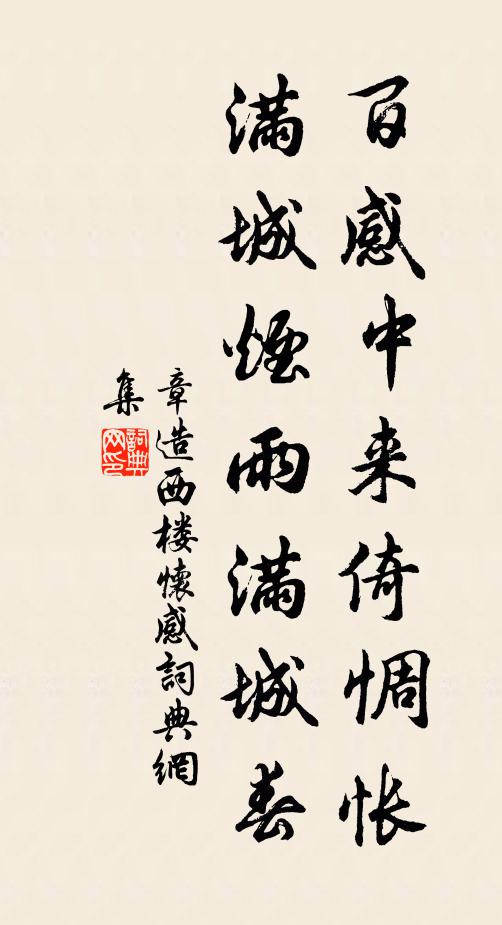 百感中来倚惆怅
满城烟雨满城春
章造西楼懷感詞典網
集
詞典网印